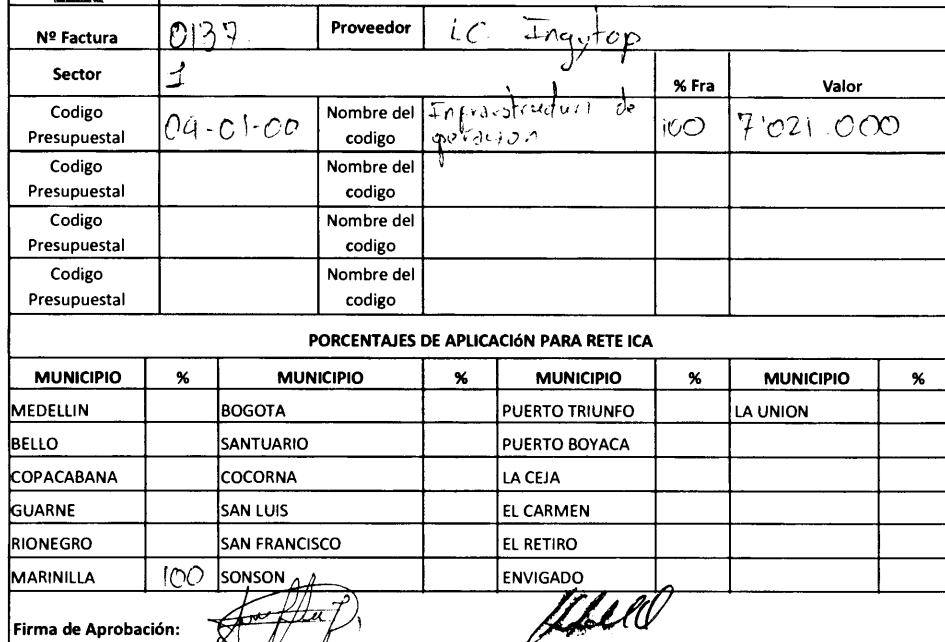 Nº Factura 0137 Proveedor I.C. Ingytop
Sector 1 % Fra Valor
Codigo Presupuestal 04-01-00 Nombre del codigo Infraestructura de operacion 100 7'021.000
Codigo Presupuestal Nombre del codigo
Codigo Presupuestal Nombre del codigo
Codigo Presupuestal Nombre del codigo
PORCENTAJES DE APLICACIóN PARA RETE ICA
MUNICIPIO % MUNICIPIO % MUNICIPIO % MUNICIPIO %
MEDELLIN BOGOTA PUERTO TRIUNFO LA UNION
BELLO SANTUARIO PUERTO BOYACA
COPACABANA COCORNA LA CEJA
GUARNE SAN LUIS EL CARMEN
RIONEGRO SAN FRANCISCO EL RETIRO
MARINILLA 100 SONSON ENVIGADO
Firma de Aprobación: